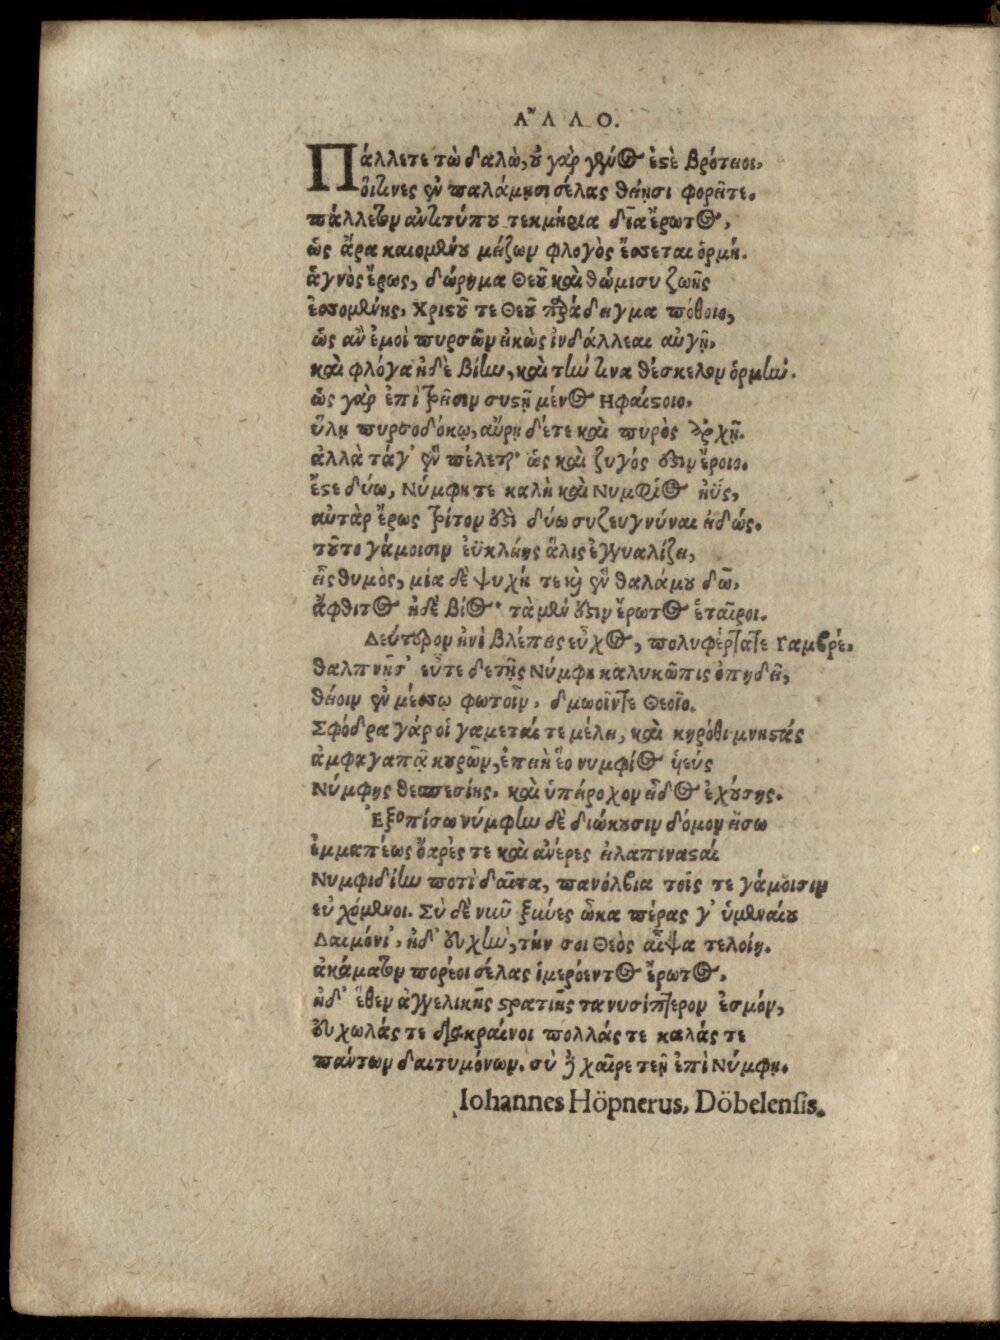 Ἄ Λ Λ Ο.
Πάλλετε τὼ δαλὼ, οὐ γὰρ γένος ἐστὲ βρότειοι,
οἵτινες ἐν παλάμησι σέλας θείησι φορεῖτε.
πάλλετον ἀντιτύπου τεκμήρια δῖα ἔρωτος,
ὡς ἄρα καιομένου μείζων φλογὸς ἔσσεται ὁρμή.
ἁγνὸς ἔρως, δώρημα Θεοῦ καὶ θώμισυ ζωῆς
ἐσσομένης, Χριστοῦ τε Θεοῦ παράδειγμα πόθοιο,
ὡς ἂν ἐμοὶ πυρσῶν εἰκὼς ἰνδάλλεαι αὐγῇ,
καὶ φλόγα ἠδὲ βίην, καὶ τὴν τινα θέσκελον ὁρμήν.
ὡς γὰρ ἐπὶ τρεῖσιν συστῇ μένος Ηφαίστοιο,
ὕλη πυρσοδόκῳ, αὔρη δέτε καὶ πυρὸς ἀρχῇ.
ἀλλὰ τάγ' ἓν πέλεται· ὡς καὶ ζυγός ἐστιν ἔροιο.
ἔστε δύω, Νύμφη τε καλὴ καὶ Νυμφίος ἠΰς,
αὐτὰρ ἔρως τρίτον ἐστὶ δύω συζευγνύναι εἰδώς.
τοῦτο γάμοισιν ἐϋκλείης ἅλις ἐγγυαλίζει,
εἷς θυμὸς, μία δὲ ψυχή τε καὶ ἓν θαλάμου δῶ,
ἄφθιτος ἠδὲ βίος· τὰ μὲν ἐστιν ἔρωτος ἑταῖροι.
Δεύτερον ἠνὶ βλέπεις εὖχος, πολυφέρτατε Γαμβρέ,
θαλπνῇστ' εὖτε δετῇς Νύμφη καλυκῶπις ὀπηδεῖ,
θείοιν ἐν μέσσῳ φωτοῖν, δμωοῖντε Θεοῖο.
Σφόδρα γάρ οἱ γαμεταί τε μέλει, καὶ κηρόθι μνηστάς
ἀμφαγαπᾷ κουρῶν, ἐπειὴ ἑο νυμφίος ἠεύς
Νύμφης θεσπεσίης, καὶ ὑπείροχον εἶδος ἐχούσης.
Ἐξοπίσω νύμφην δὲ διώκουσιν δόμον εἴσω
ἐμμαπέως ὄαρές τε καὶ ἀνέρες εἰλαπινασταί
Νυμφιδίην ποτὶ δαῖτα, πανόλβια τοῖς τε γάμοισιν
εὐχόμενοι. Σὺ δὲ νῦν ξυνές ὦκα πέρας γ' ὑμεναίου
Δαιμόνι', ἠδ' εὐχὴν, τήν σοι Θεὸς αἶψα τελοίη.
ἀκάματον πορέοι σέλας ἱμερόεντος ἔρωτος.
ἠδ' ἕθεν ἀγγελικῆς στρατιῆς τανυσίπτερον ἐσμόν,
εὐχωλάς τε διακραίνοι πολλάς τε καλάς τε
πάντων δαιτυμόνων. σὺ δὲ χαῖρε τεῇ ἐπὶ Νύμφῃ.
Iohannes Höpnerus, Döbelensis.